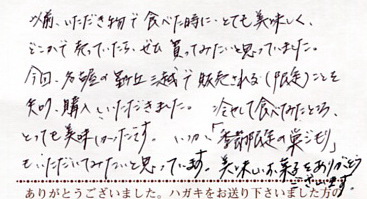 以前、いただき物で食べた時に、とても美味しく、
どこかで売っていたら、ぜひ買ってみたいと思っていました。
今回、名古屋の星ヶ丘三越で販売される(限定)ことを
知り、購入いただきました。 冷やして食べてみたところ、
とっても美味しかったです。 いつか「季節限定の巣ごもり」
もいただいてみたいと思っています。美味しいお菓子をありがとう
ございます。
ありがとうございました。ハガキをお送り下さいました方の